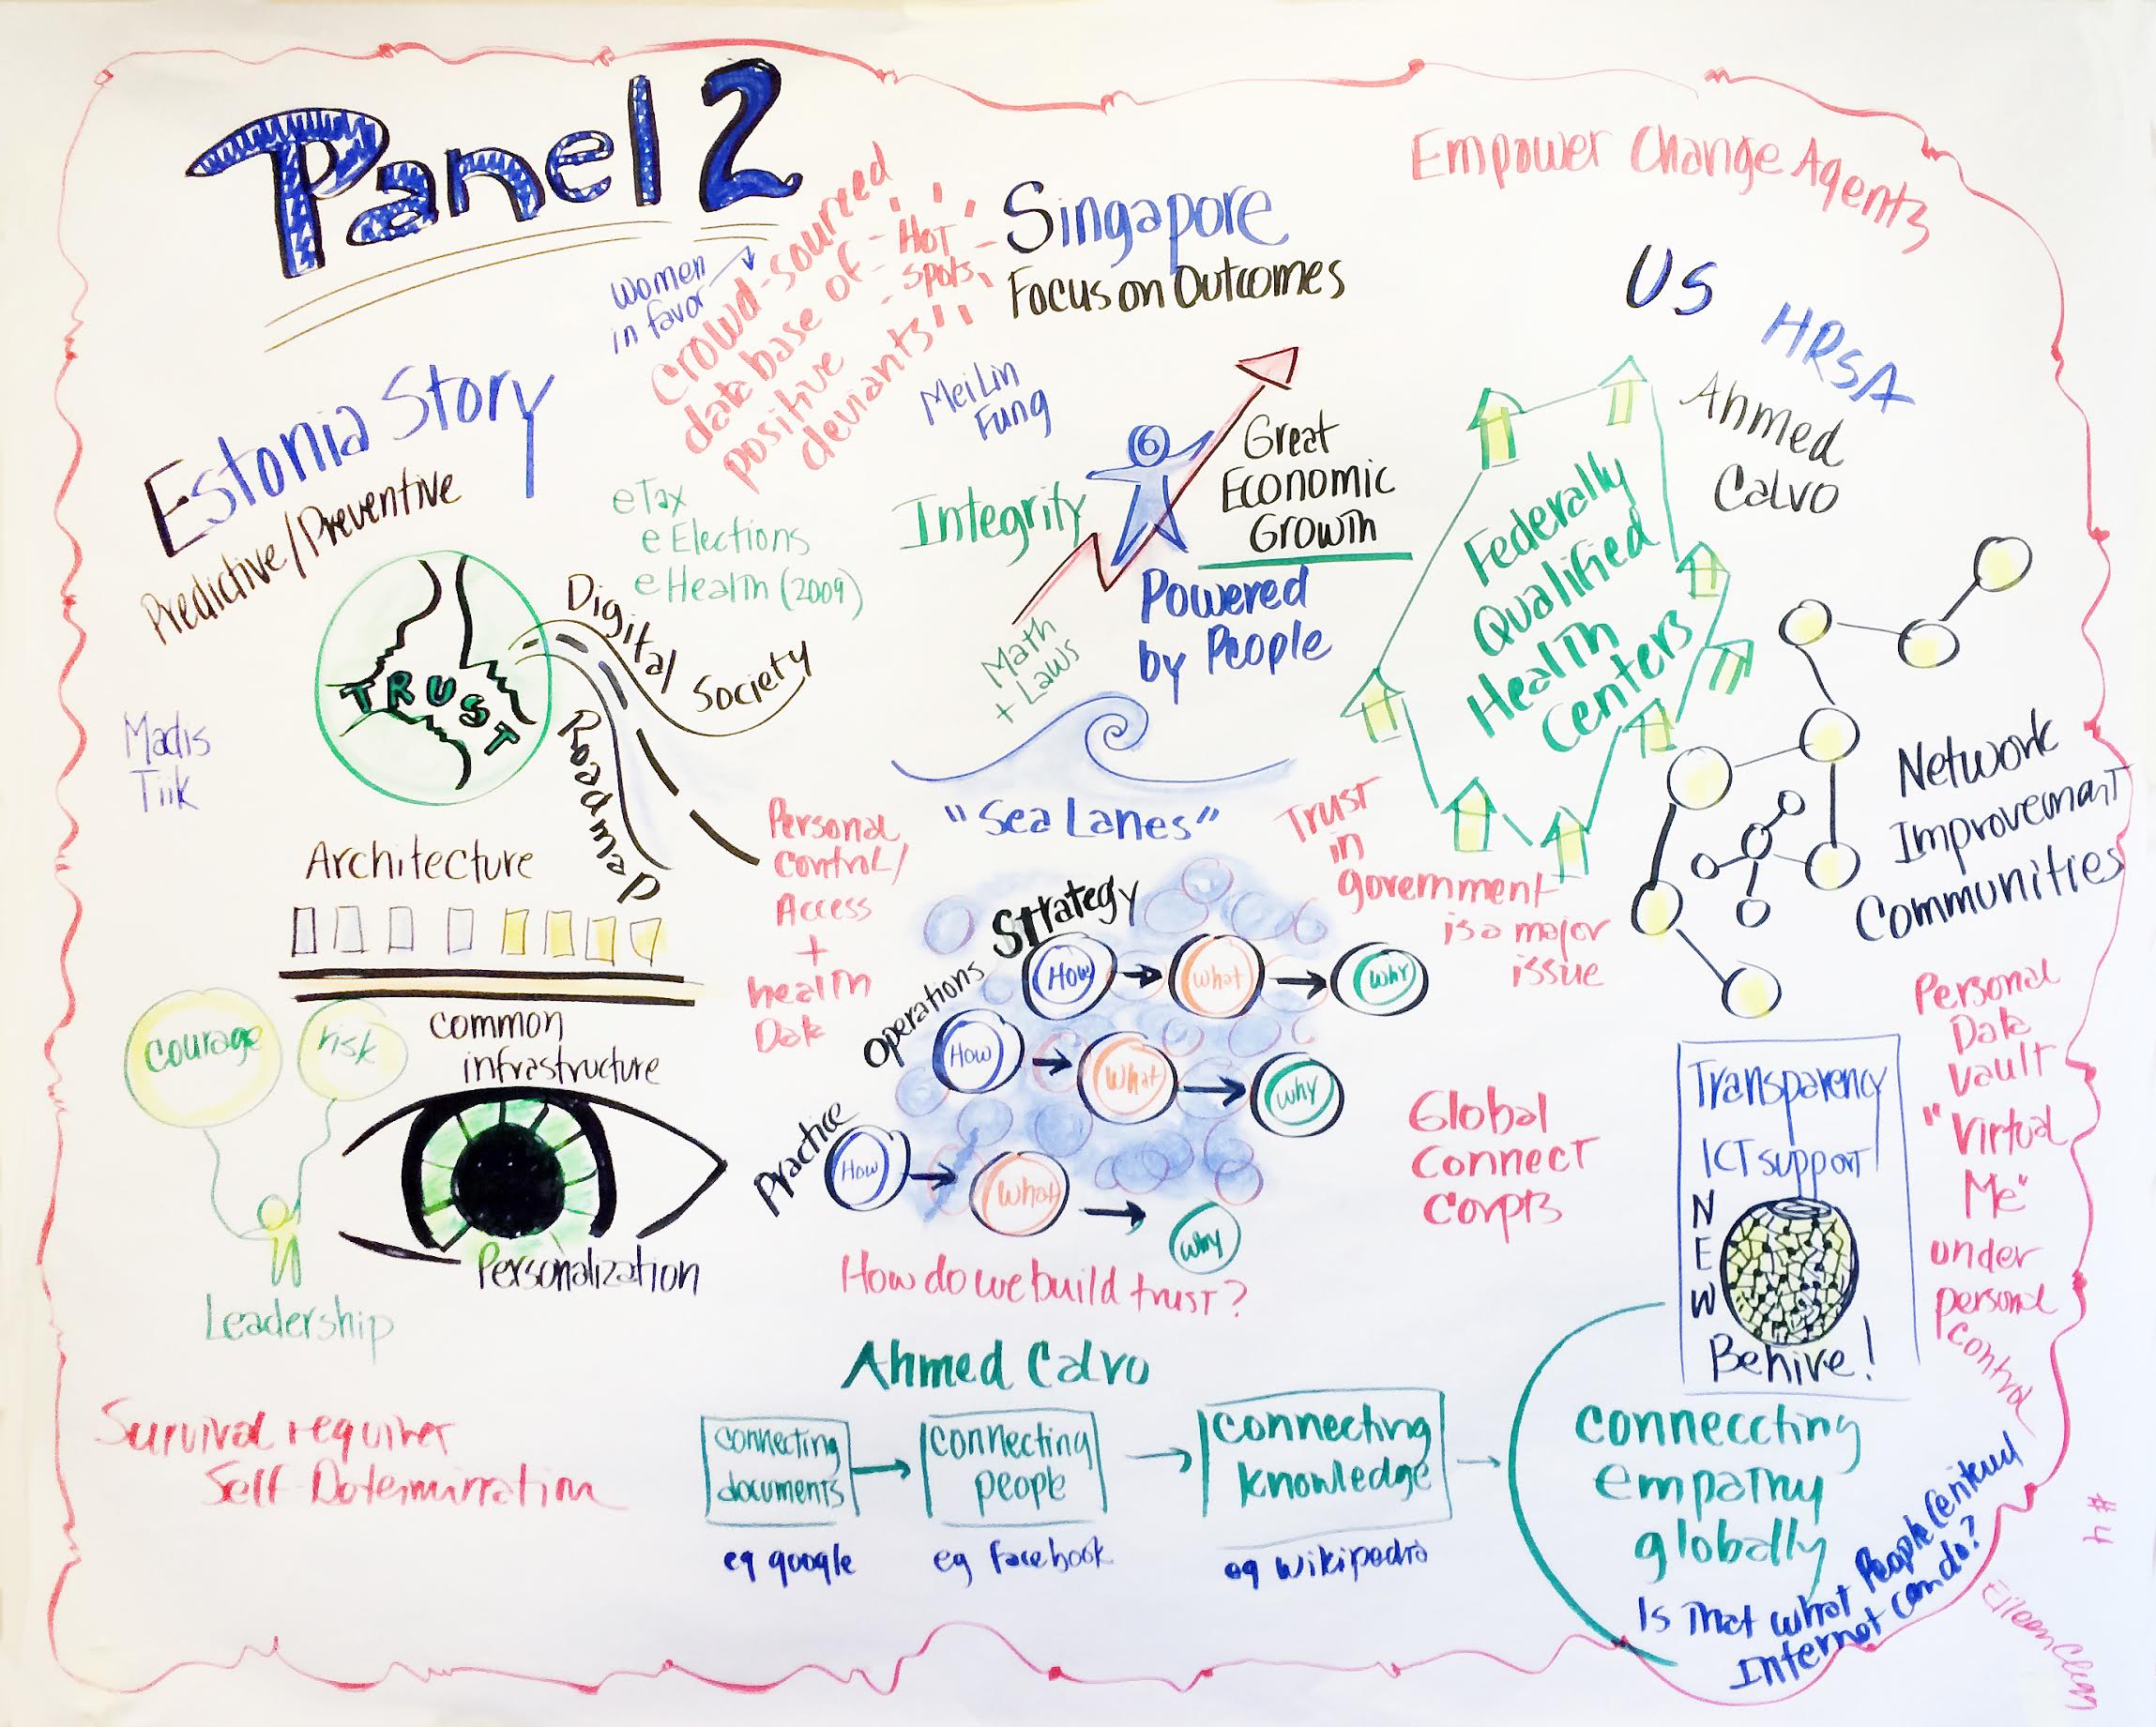 Panel 2
Women
in favor
Crowd-sourced
data base of
positive
deviants"
HOT
spots
Singapore
Focus on Outcomes
Empower Change Agents
US
HRSA
Ahmed
Calvo
Estonia Story
Predictive/Preventive
eTax
e Elections
e Health (2009)
MeiLin
Fung
Integrity
Great
Economic
Growth
Powered
by People
Math
+ Laws
Federally
Qualified
Health
Centers
TRUST
Digital
Society
Roadmap
Madis
Tiik
"Sea Lanes"
Network
Improvemant
Communities
Architecture
Personal
Control/
Access
+
health
Data
Trust
in
government
is a major
issue
Strategy
How
What
Why
Operations
How
What
Why
Practice
How
What
Why
How do we build trust?
courage
risk
common
infrastructure
Personalization
Leadership
Global
Connect
Transparency
ICT support
NEW
Behive!
Personal
Data
Vault
"Virtual
Me"
under
personal
control
Survival requires
Ahmed Calvo
connecting
documents
eg google
connecting
people
eg facebook
connecting
knowledge
eg wikipedia
conneccting
empathy
globally
Is that what People Centered
Internet can do?
#4
Eileen Clegg